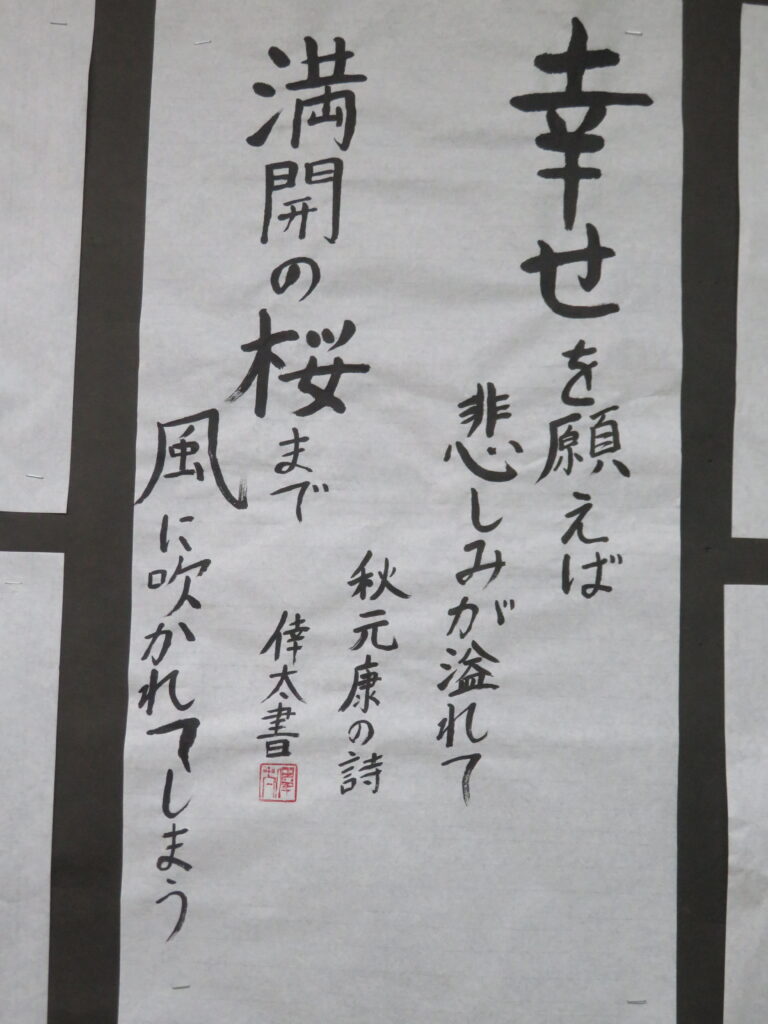 幸せを願えば
悲しみが溢れて
満開の桜まで
風に吹かれてしまう
秋元康の詩
倖太書